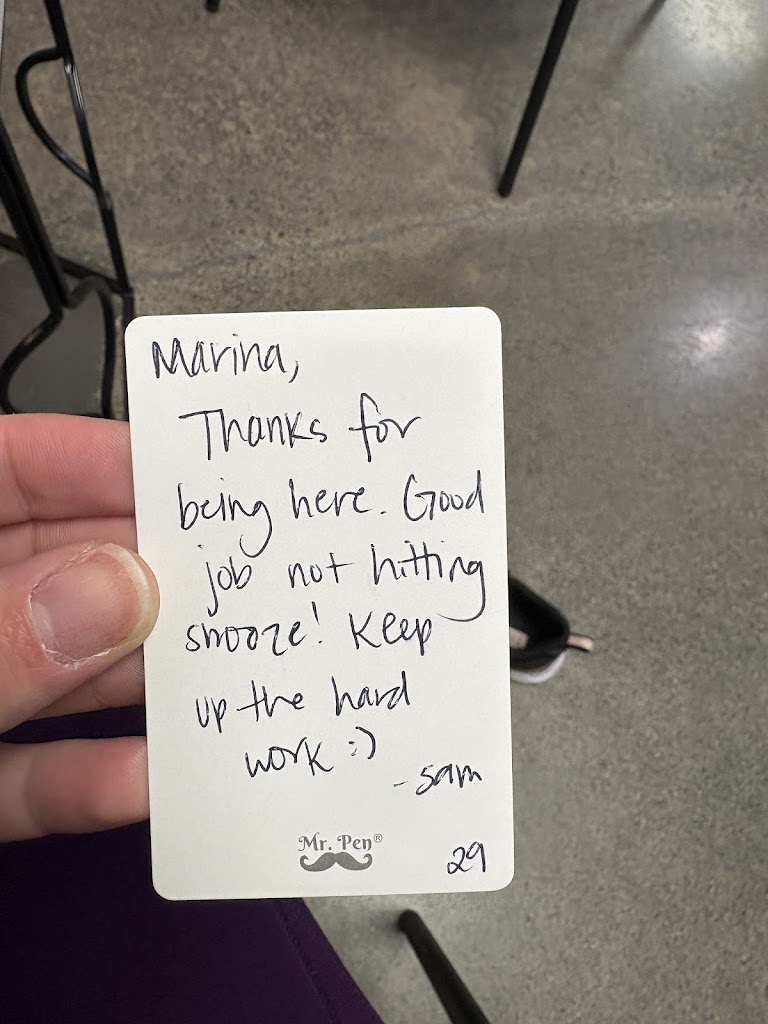 Marina,
Thanks for
being here. Good
job not hitting
snooze! Keep
up the hard
work :)
-sam
Mr. Pen®
29